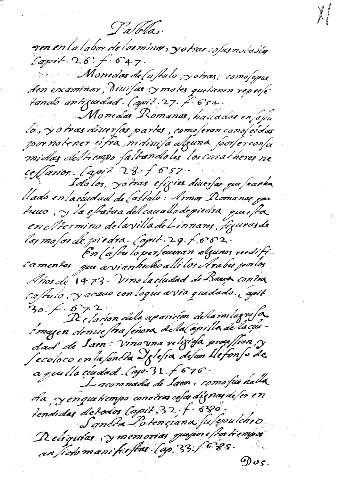 Tabla.
ron en la labor de las minas, y otras cosas notables
Capit. 26. f. 647.
Monedas de Castulo, y otras: como se pue
den examinar, Divisas y motes que tienen represen
tando antiguedad. Capit. 27. f. 654.
Monedas Romanas, halladas en Castu
lo, y otras diversas partes, como eran conocidas
por no tener cifra, ni divisa alguna por ser consu
midas del tiempo faltandoles los caracteres ne
cessarios. Capit. 28. f. 657.
Idolos, y otras efigies diversas que se an ha
llado en la ciudad de Castulo: Armas Romanas que
tuvo, y la estatua del cavallo de piedra que esta
en el termino de la villa de Linares, figuras de
las mosas de piedra. Capit. 29. f. 662.
En Castulo perseveran algunos reedifi
camentos que avian hecho alli los Arabes por los
Años de 1473. Vino la ciudad de Baeza contra
Castulo, y acavo con lo que avia quedado. Capit.
30. f. 672
Relacion de la aparicion de la milagrosa
imagen de nuestra señora de la Capilla de la ciu
dad de Jaen. vino una religiosa procession, y
se coloco en la santa Iglesia de san Ilefonso de
aquella ciudad. Cap. 31. f. 676.
La comadia de Jaen, como fue halla
da, y en que tiempo con otras cosas dignas de ser en
tendidas de todos Capit. 32. f. 680.
Sancta Potenciana, su sepulchro
Reliquias, y memorias que en estos tiempos
an sido manifiestas. Cap. 33. f. 685.
Dos.